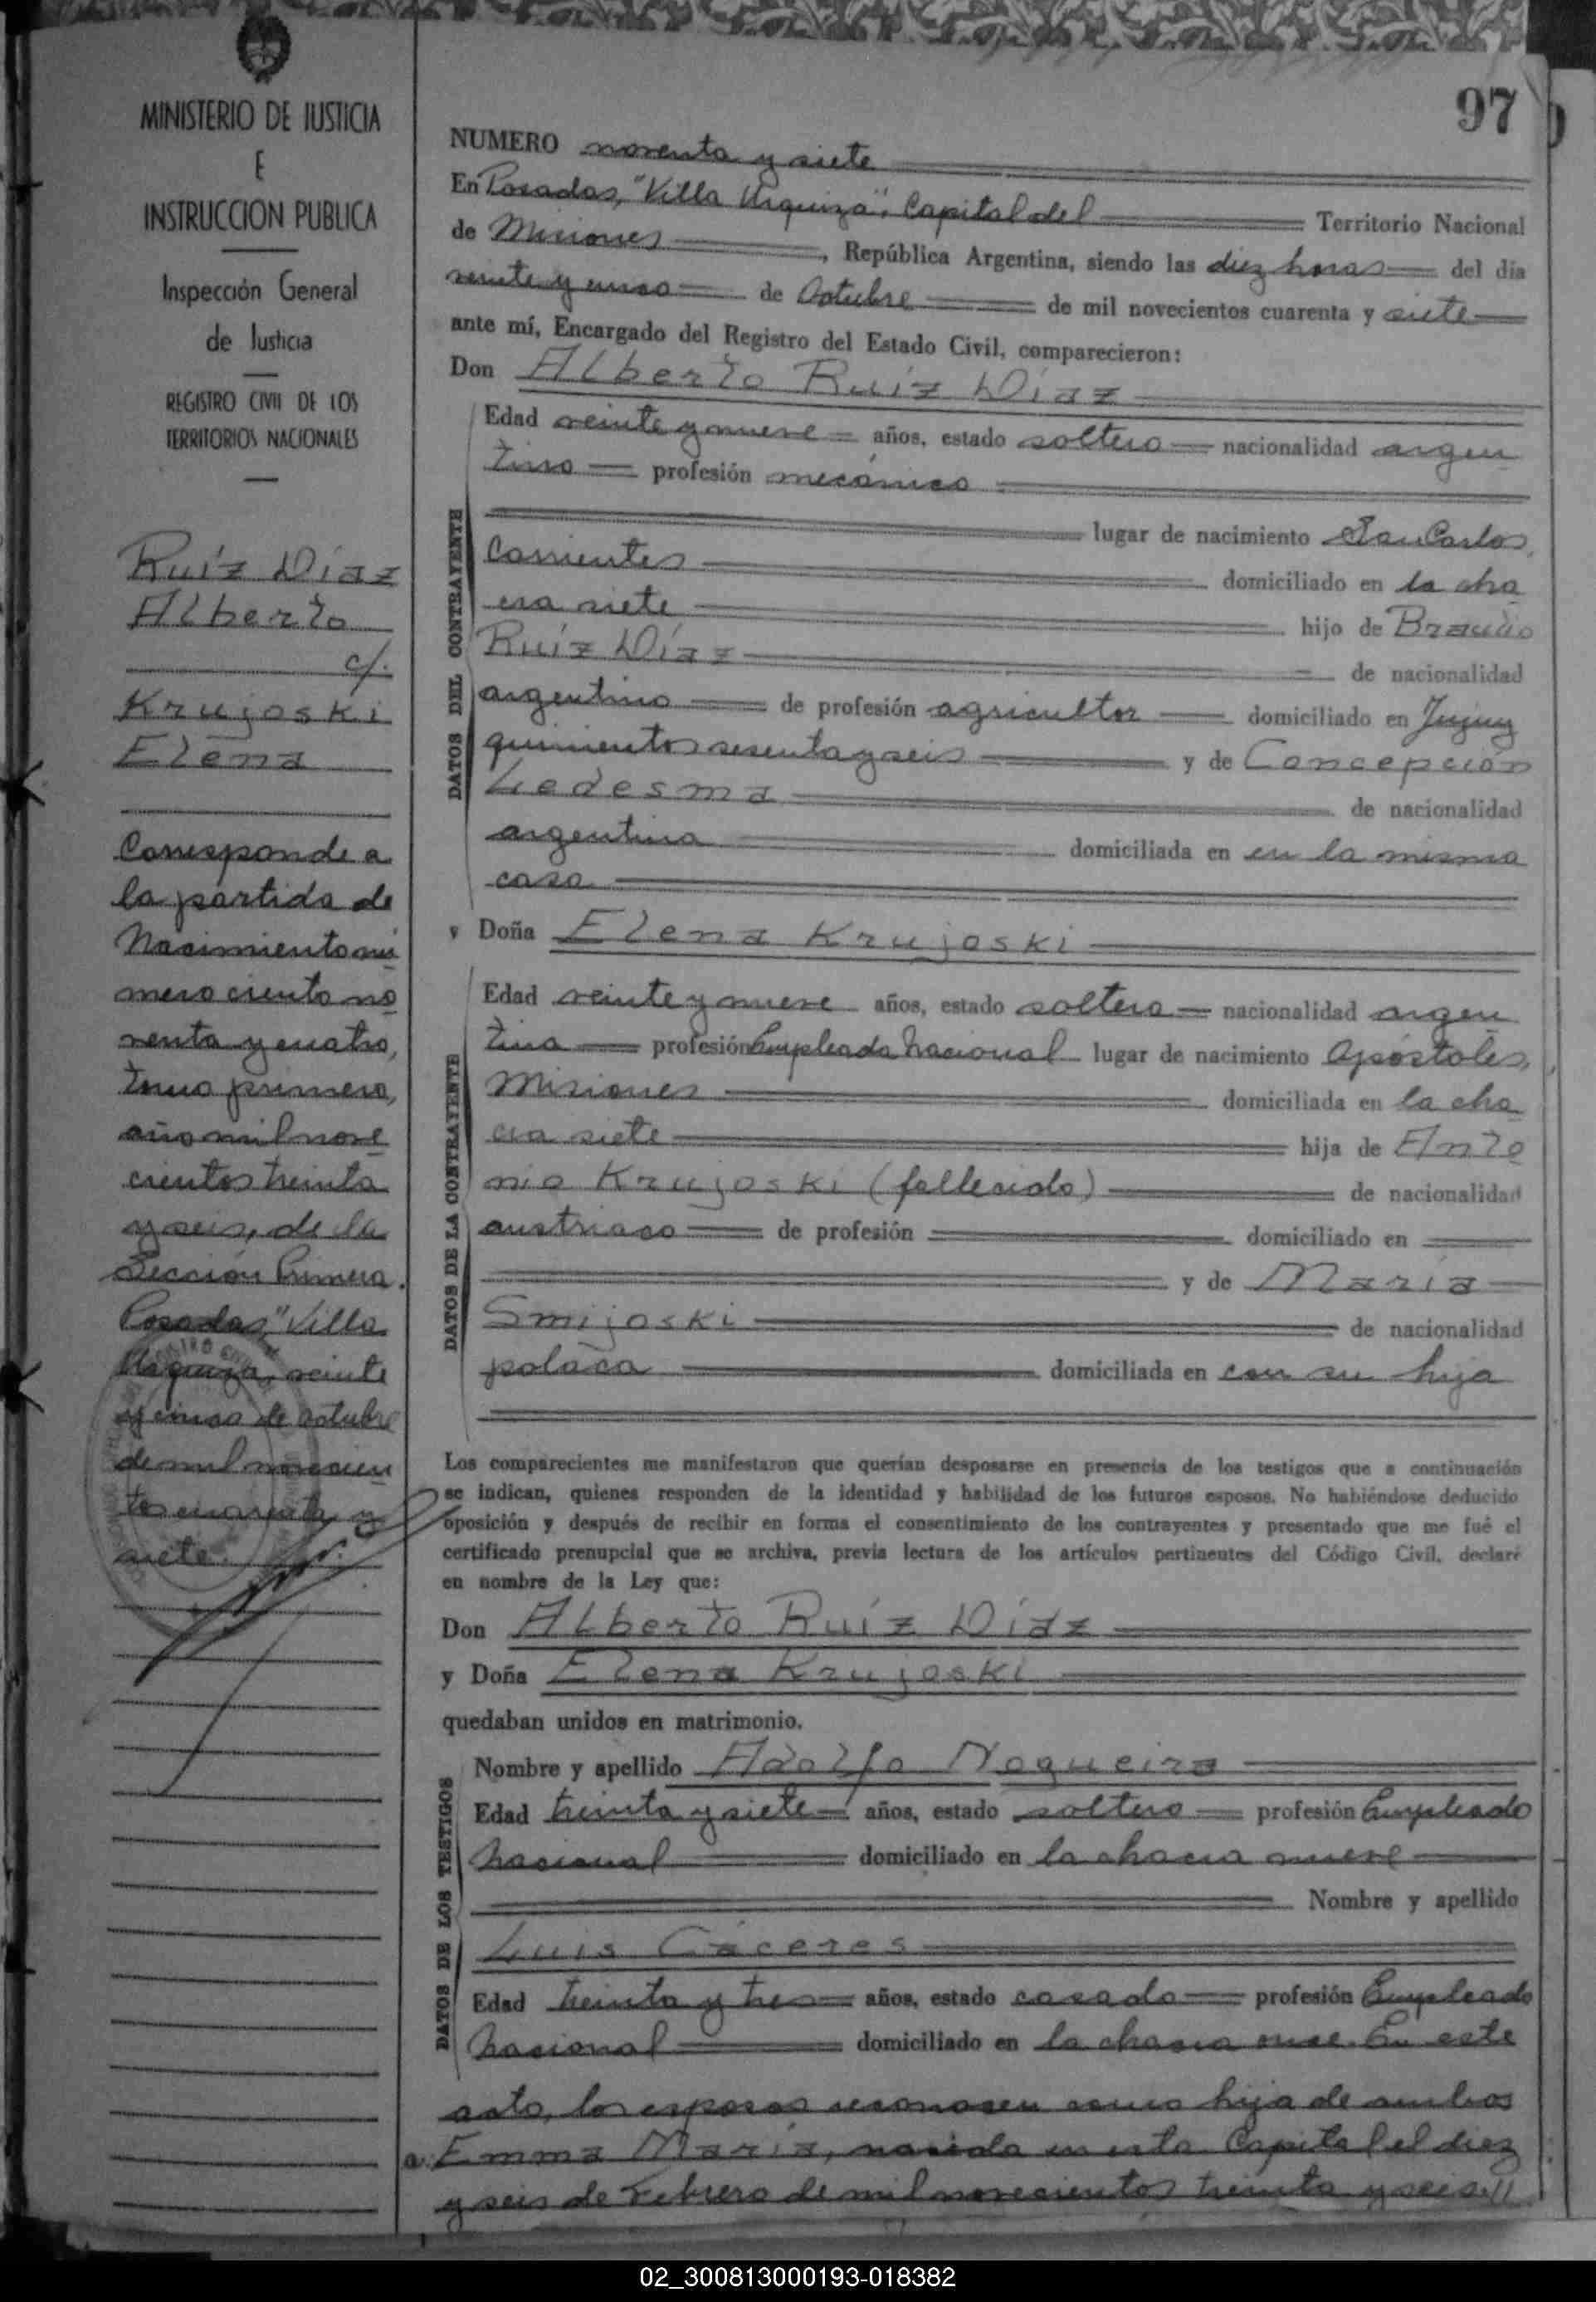 MINISTERIO DE JUSTICIA
E
INSTRUCCION PUBLICA
Inspección General
de Justicia
REGISTRO CIVIL DE LOS
TERRITORIOS NACIONALES
Ruíz Díaz
Alberto
c/.
Krujoski
Elena
Corresponde a
la partida de
Nacimiento nú
mero ciento no
venta y cuatro,
tomo primero,
año mil nove
cientos treinta
y seis, de la
Sección Primera.
Posadas, "Villa
Urquiza, veinte
y cinco de octubre
de mil novecien
tos cuarenta y
siete.
97
NUMERO noventa y siete
En Posadas, "Villa Urquiza", Capital del Territorio Nacional
de Misiones, República Argentina, siendo las diez horas del día
veinte y cinco de Octubre de mil novecientos cuarenta y siete
ante mí, Encargado del Registro del Estado Civil, comparecieron:
Don Alberto Ruíz Díaz
DATOS DEL CONTRAYENTE
Edad veinte y nueve años, estado soltero nacionalidad argen
tino profesión mecánico
lugar de nacimiento San Carlos,
Corrientes domiciliado en la cha
cra siete hijo de Braulio
Ruíz Díaz de nacionalidad
argentino de profesión agricultor domiciliado en Jujuy
quinientos sesenta y seis y de Concepción
Ledesma de nacionalidad
argentina domiciliada en en la misma
casa
y Doña Elena Krujoski
DATOS DE LA CONTRAYENTE
Edad veinte y nueve años, estado soltera nacionalidad argen
tina profesión Empleada Nacional lugar de nacimiento Apóstoles,
Misiones domiciliada en la cha
cra siete hija de Anto
nio Krujoski (fallecido) de nacionalidad
austriaco de profesión domiciliado en
y de María
Smijoski de nacionalidad
polaca domiciliada en con su hija
Los comparecientes me manifestaron que querían desposarse en presencia de los testigos que a continuación
se indican, quienes responden de la identidad y habilidad de los futuros esposos. No habiéndose deducido
oposición y después de recibir en forma el consentimiento de los contrayentes y presentado que me fué el
certificado prenupcial que se archiva, previa lectura de los artículos pertinentes del Código Civil, declaré
en nombre de la Ley que:
Don Alberto Ruíz Díaz
y Doña Elena Krujoski
quedaban unidos en matrimonio.
DATOS DE LOS TESTIGOS
Nombre y apellido Adolfo Nogueira
Edad treinta y siete años, estado soltero profesión Empleado
Nacional domiciliado en la chacra nueve
Nombre y apellido
Luis Cáceres
Edad treinta y tres años, estado casado profesión Empleado
Nacional domiciliado en la chacra once. En este
acto, los esposos reconocen como hija de ambos
a: Emma María, nacida en esta Capital el diez
y seis de Febrero de mil novecientos treinta y seis.//
02_300813000193-018382